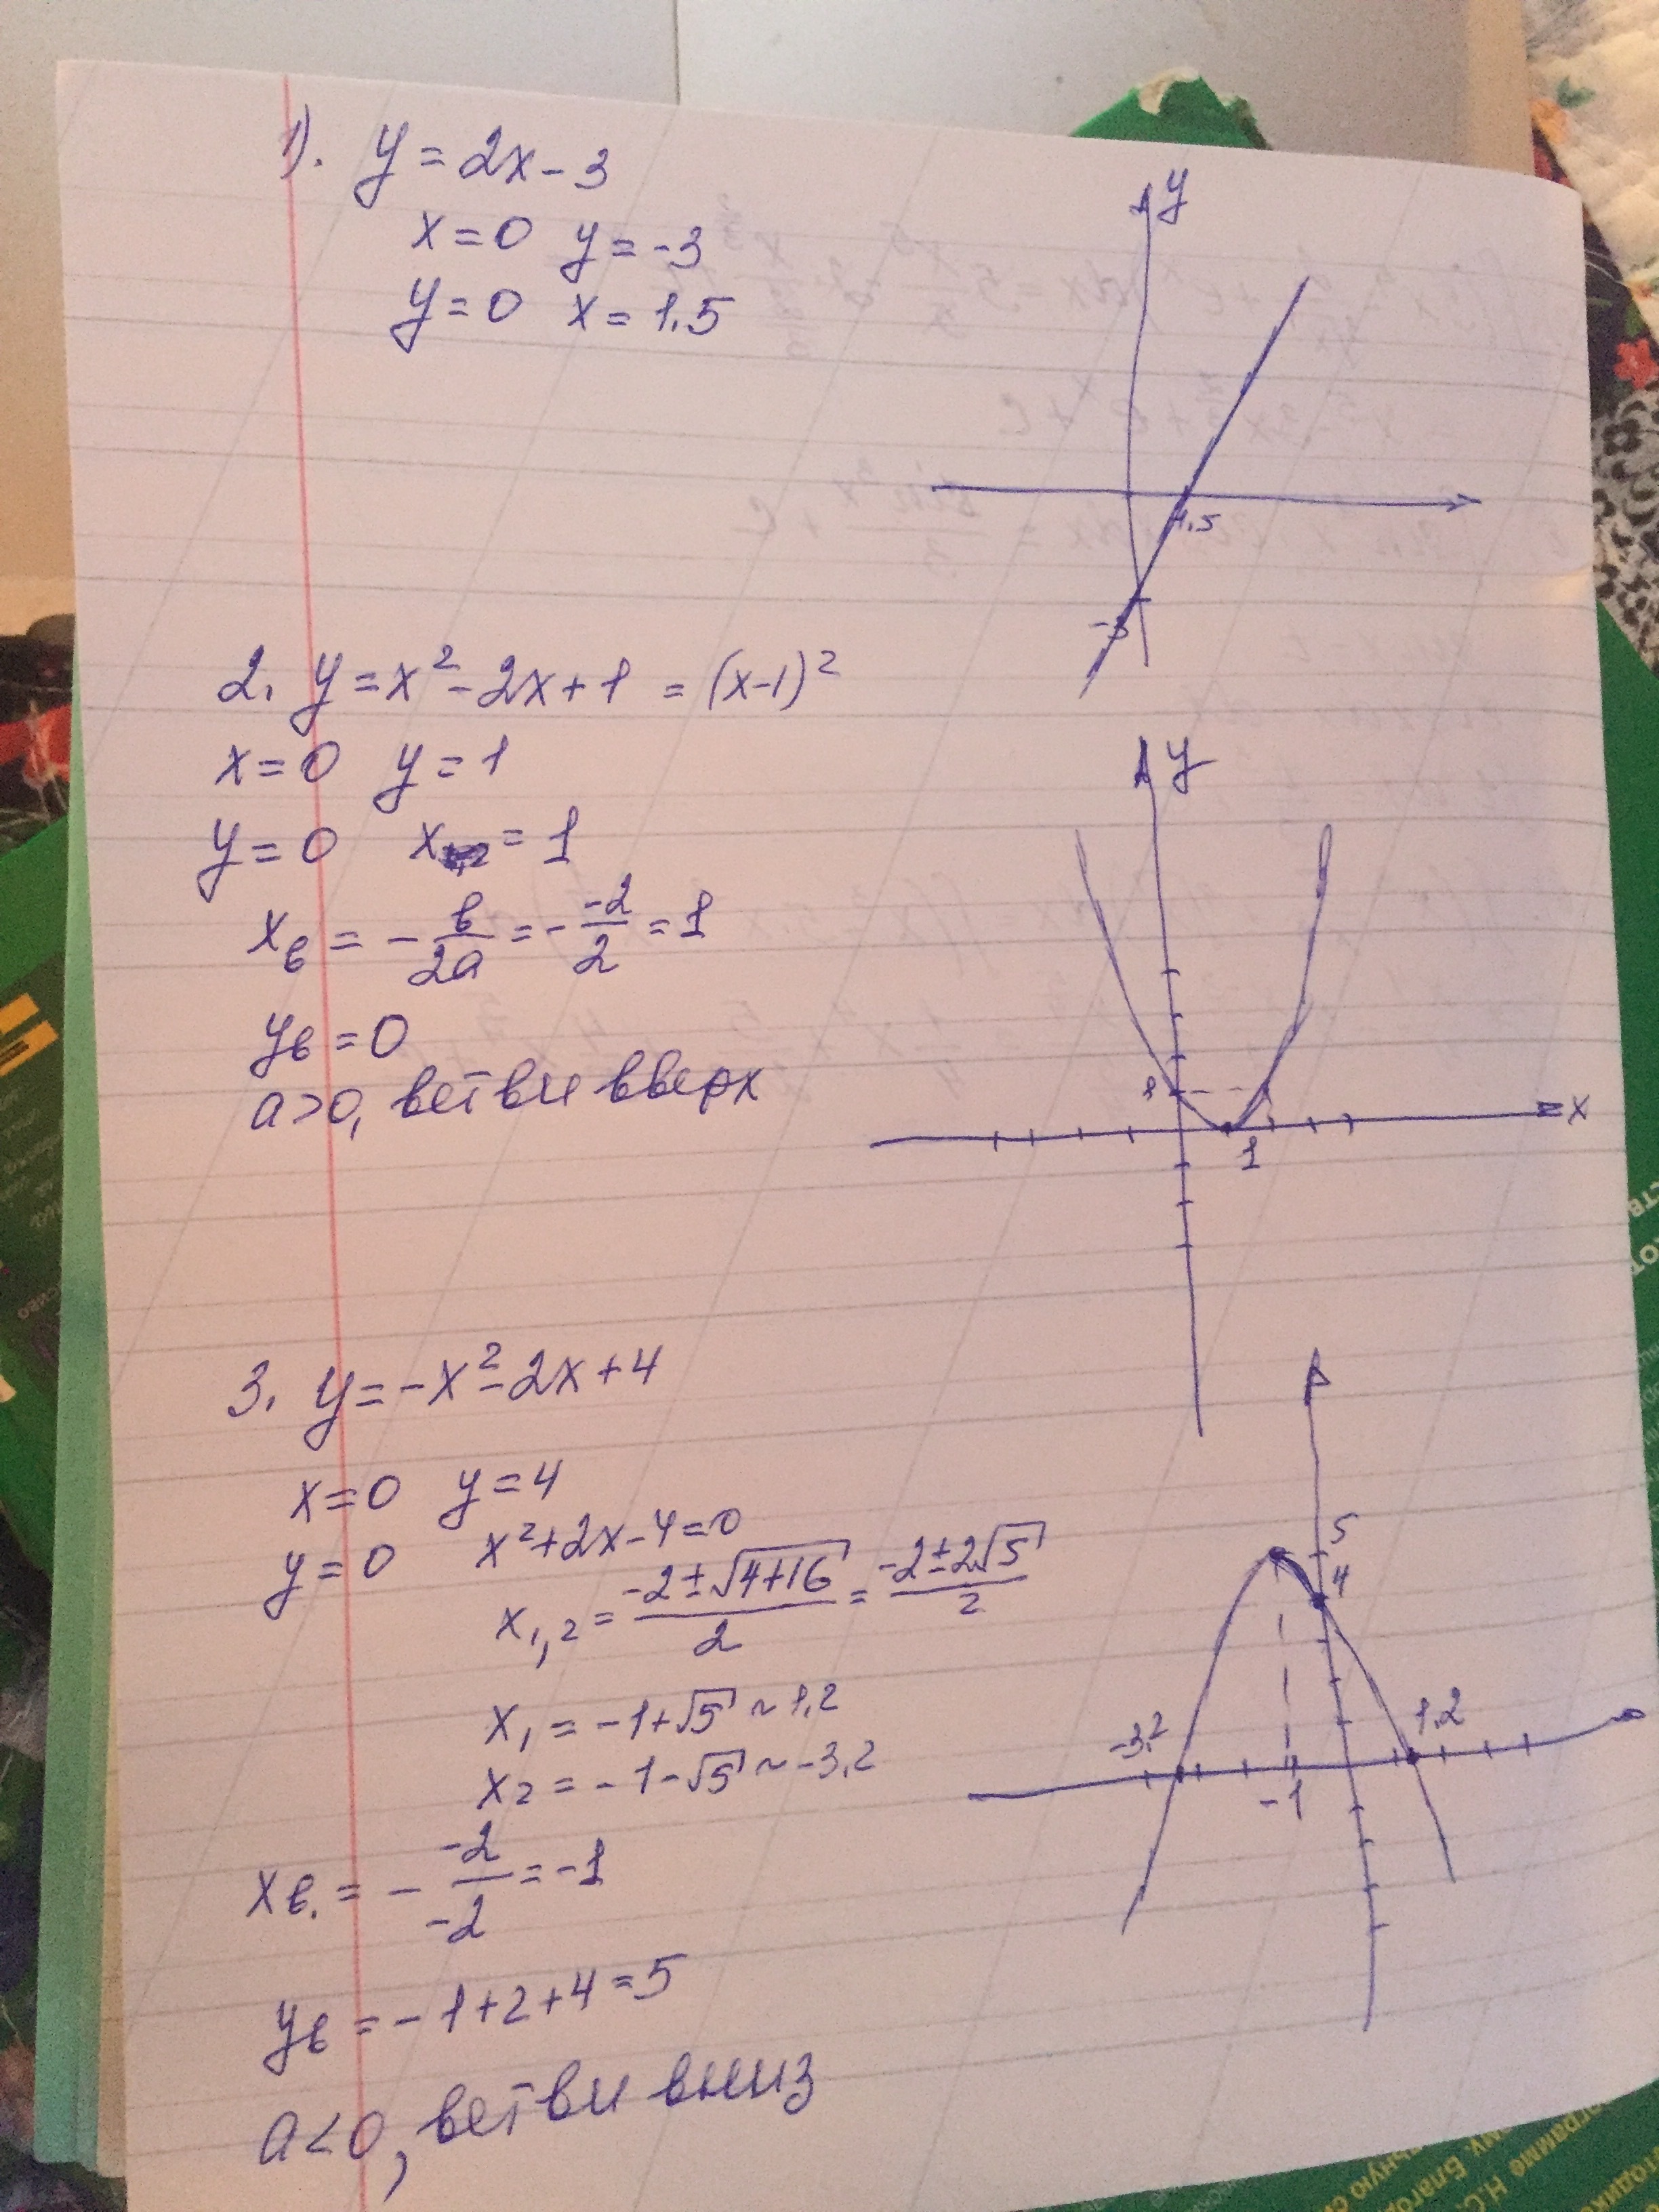 1). y = 2x - 3
x = 0 y = -3
y = 0 x = 1,5
y
1,5
-3
2. y = x² - 2x + 1 = (x-1)²
x = 0 y = 1
y = 0 x = 1
xв = - в/2а = - -2/2 = 1
yв = 0
a > 0, ветви вверх
y
1
x
1
3. y = -x² - 2x + 4
x = 0 y = 4
y = 0 x² + 2x - 4 = 0
x₁,₂ = (-2 ± √(4+16))/2 = (-2 ± 2√5)/2
x₁ = -1 + √5 ~ 1,2
x₂ = -1 - √5 ~ -3,2
xв. = - -2/-2 = -1
yв = -1 + 2 + 4 = 5
a < 0, ветви вниз
5
4
-3,2
1,2
-1